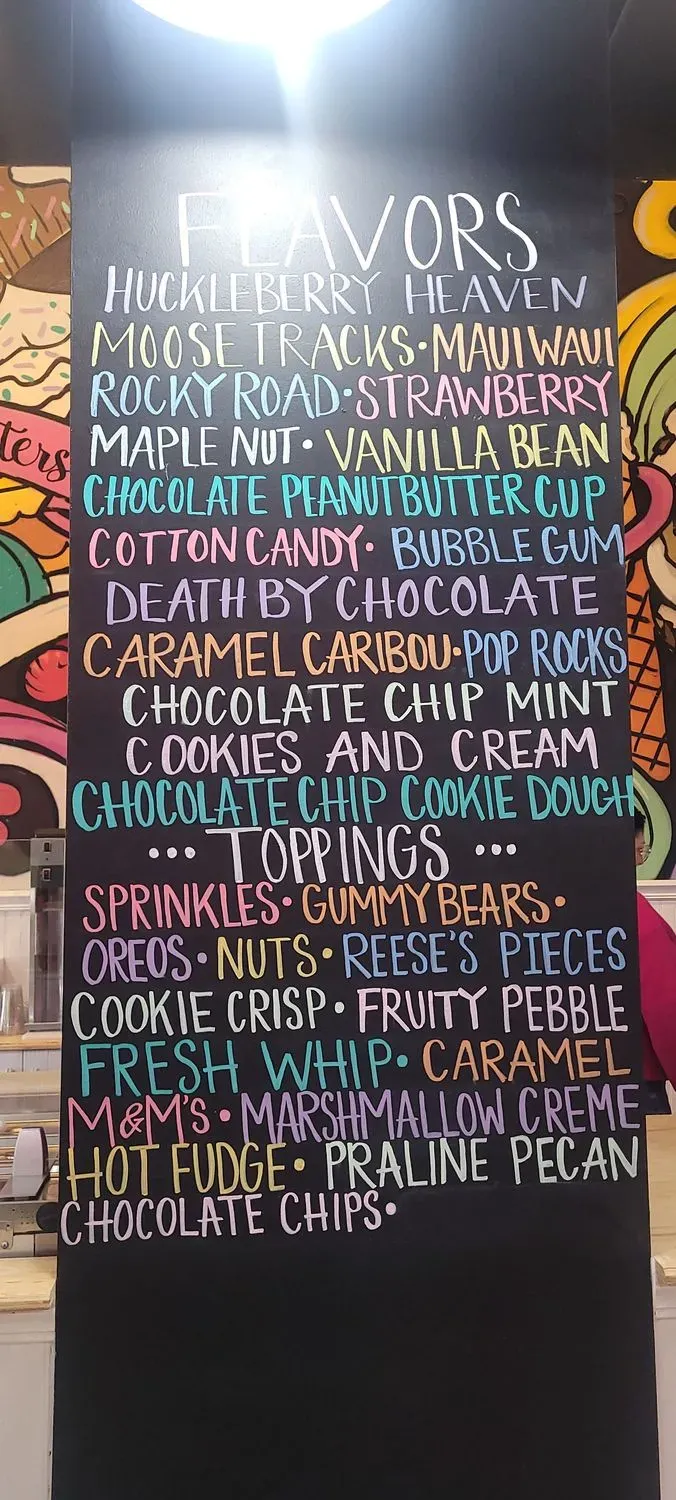 FLAVORS
HUCKLEBERRY HEAVEN
MOOSE TRACKS • MAUI WAUI
ROCKY ROAD • STRAWBERRY
MAPLE NUT • VANILLA BEAN
CHOCOLATE PEANUTBUTTER CUP
COTTON CANDY • BUBBLE GUM
DEATH BY CHOCOLATE
CARAMEL CARIBOU • POP ROCKS
CHOCOLATE CHIP MINT
COOKIES AND CREAM
CHOCOLATE CHIP COOKIE DOUGH
... TOPPINGS ...
SPRINKLES • GUMMY BEARS •
OREOS • NUTS • REESE'S PIECES
COOKIE CRISP • FRUITY PEBBLE
FRESH WHIP • CARAMEL
M&M'S • MARSHMALLOW CREME
HOT FUDGE • PRALINE PECAN
CHOCOLATE CHIPS •